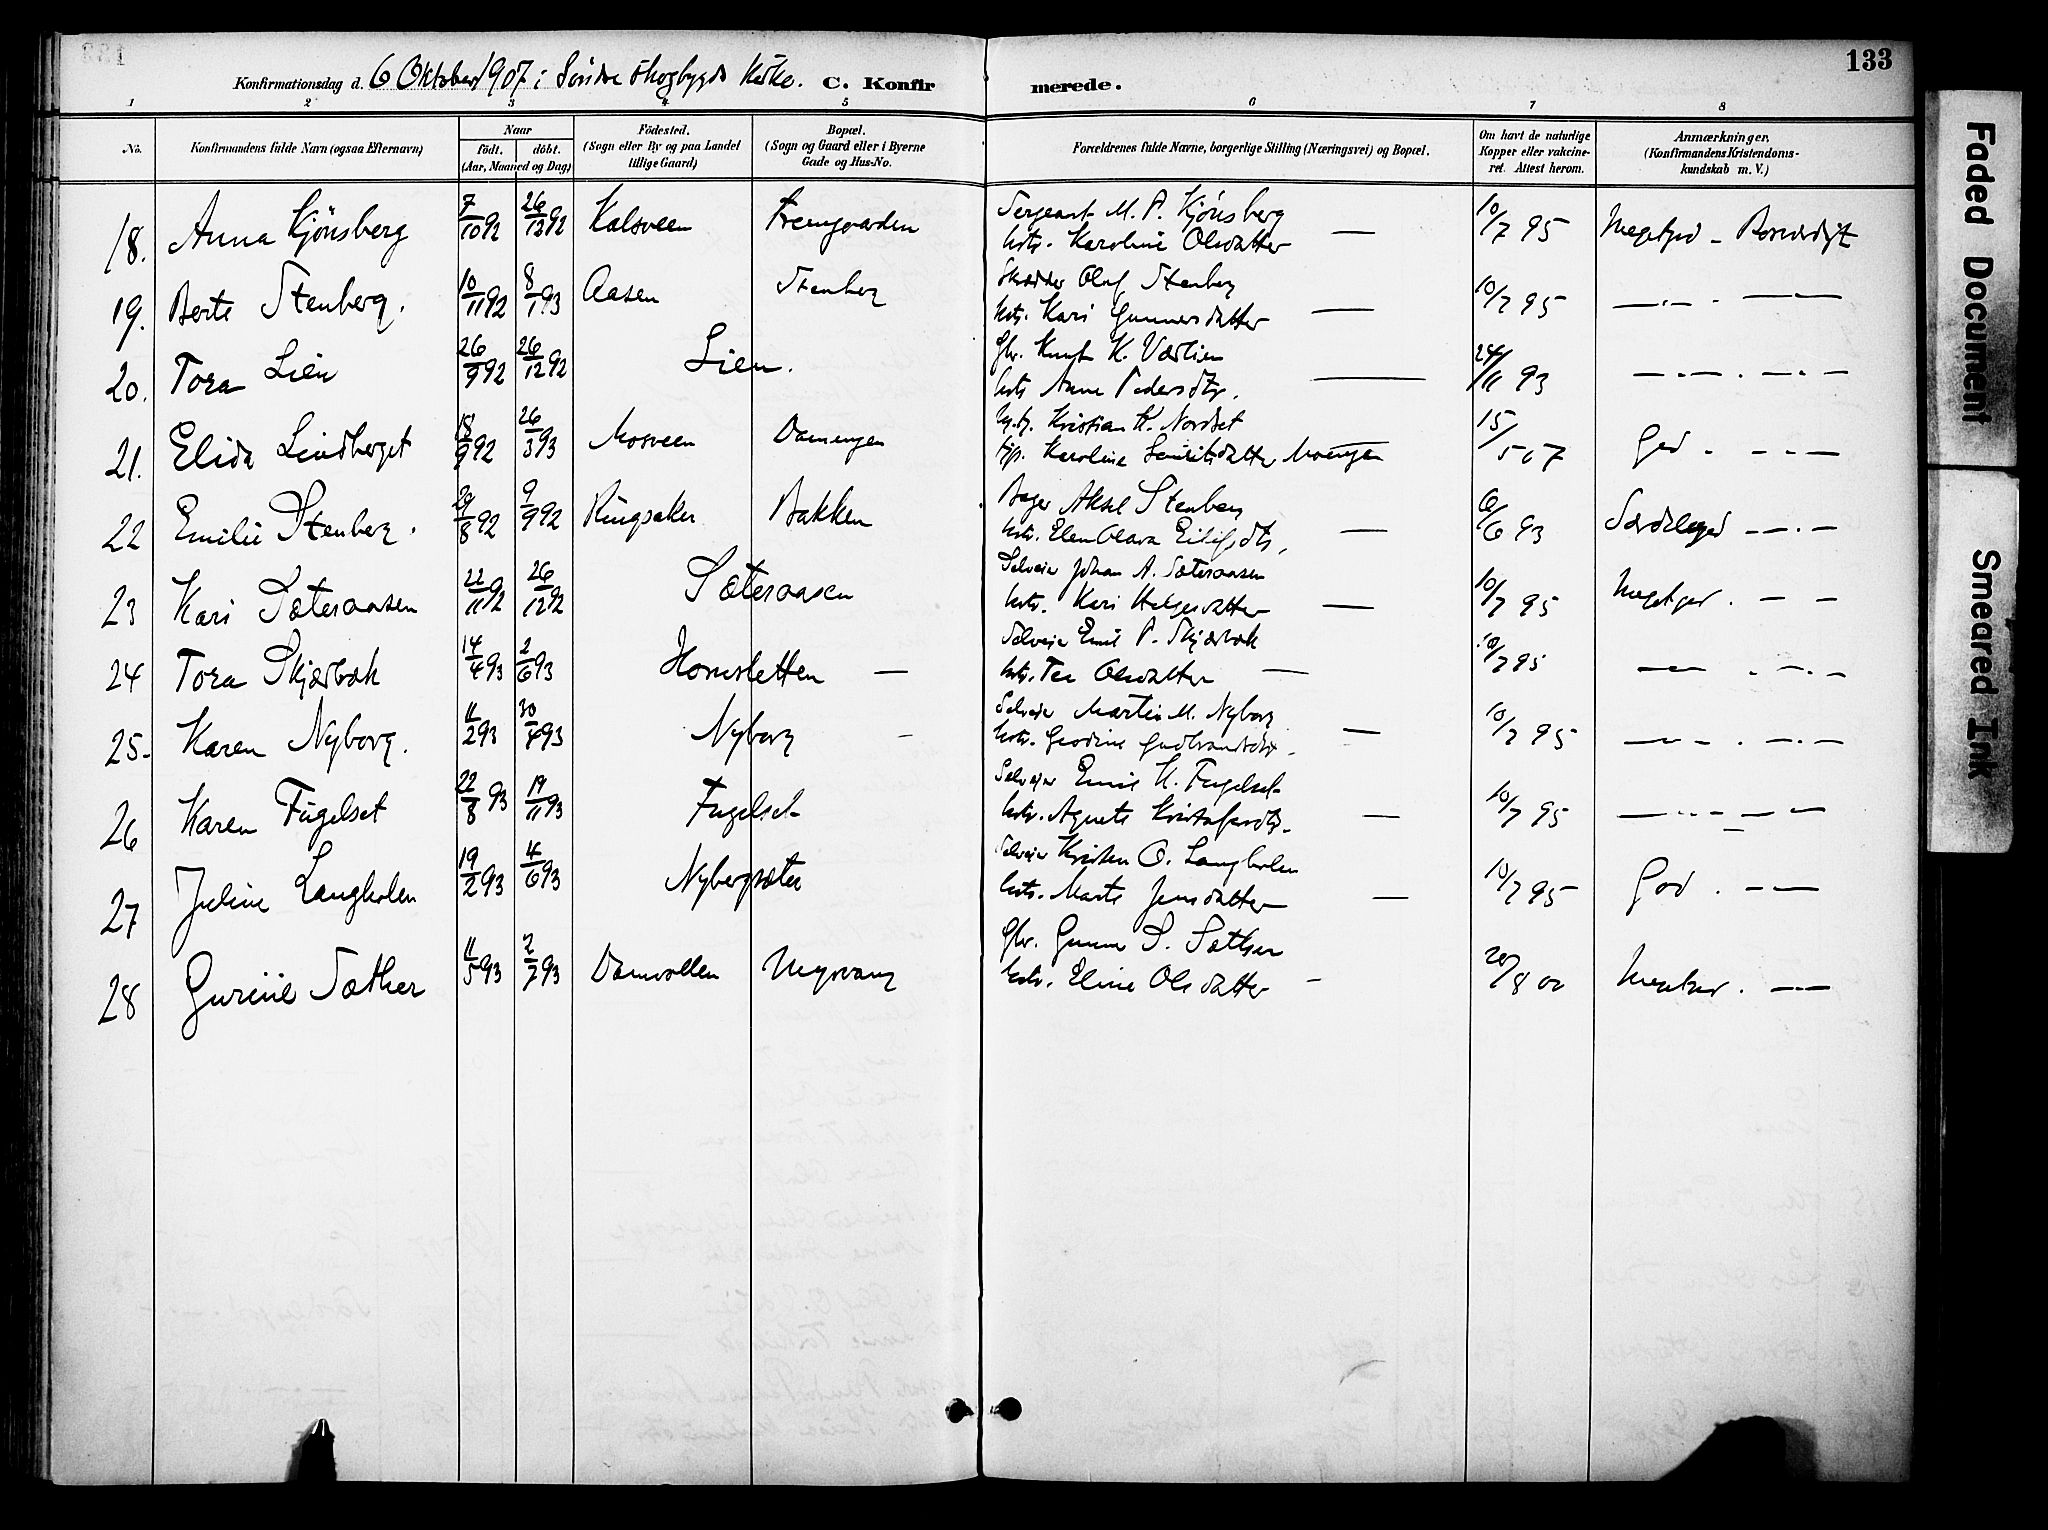 133
Konfirmationsdag d. 6 Oktober 1907 i Søndre Skogbygda Kirke. C. Konfirmerede.
1 2 3 4 5 6 7 8
No. Konfirmandens fulde Navn (ogsaa Efternavn) Naar født. døbt. (Aar, Maaned og Dag) Fødested. (Sogn eller By og paa Landet tillige Gaard) Bopæl. (Sogn og Gaard eller i Byerne Gade og Hus-No. Forældrenes fulde Navne, borgerlige Stilling (Næringsvei) og Bopæl. Om havt de naturlige Kopper eller vakcineret. Attest herom. Anmærkninger, (Konfirmandens Kristendomskundskab m. V.)
18. Anna Kjønsberg 7/10 92 26/12 92 Kalsveen Sergeant M. P. Kjønsberg
Karoline Olsdatter — 10/7 95 Megetgod
19. Berte Stenberg. 10/11 92 8/1 93 Aasen Stenberg Skrædder Oluf Stenberg
Kari Gunnersdatter — 10/7 95 — " —
20. Tora Lien 26/9 92 26/12 92 Lien. Gbr. Knut K.
Anne Pedersdtr. — 24/11 93 — " —
21. Elida Lindberget 18/9 92 26/3 93 Mosveen Kristian K. Nordset
Karoline Moengen 15/5 07 God
22 Emilie Stenberg. 29/8 92 9/9 92 Ringsaker Bakken Bager Aksel Stenberg
Elen Olava — 6/6 93 Særdelesgod — " —
23 Kari Sæteraasen 22/11 92 26/12 92 Sæteraasen Selveier Johan A. Sæteraasen
Kari Helgesdatter — 10/7 95 Megetgod. — —
24 Tora Skjærbæk 14/4 93 2/6 93 Hornsletten — Selveier Emil P. Skjærbæk
Olsdatter — 10/7 95 — " —
25- Karen Nyborg. 11/2 93 30/4 93 Nyborg - Selveier Martin M. Nyborg
Gudbrandsdtr. — 10/7 95 — " —
26 Karen Fugelset 22/8 93 19/11 93 Fugelset Selveier Emil K. Fugelset
Agnete Kristofersdtr. — 10/7 95 — " —
27 Juline Langholen 19/2 93 4/6 93 Nybergsæter Selveier Kristen O. Langholen
Marte Jensdatter — 10/7 95 God. — —
28 Gurine Sæther 11/5 93 2/7 93 Damvollen Myrvang Gbr. Gunnar S. Sæther
Eline Olsdatter - 20/8 00 Megetgod. — —
Faded Document
Smeared Ink